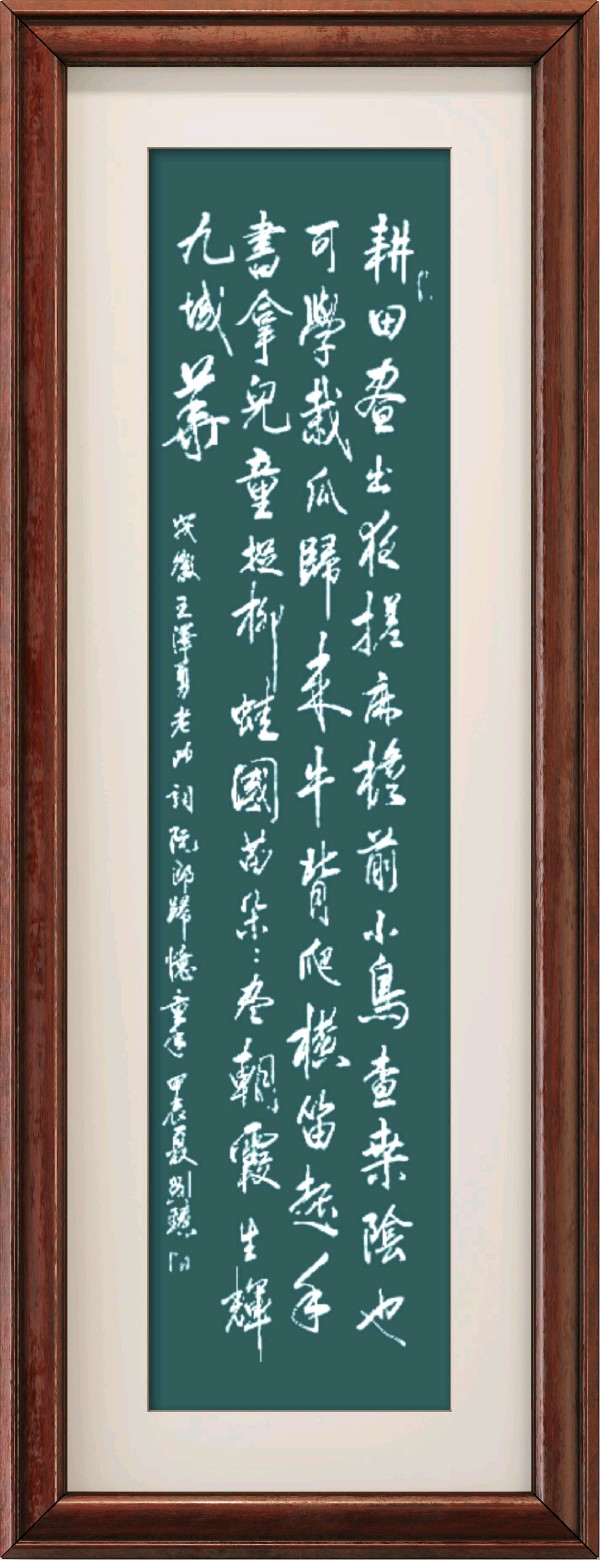 耕田晝出夜搓麻檐前小鳥查桑陰也
可學栽瓜歸來牛背爬橫笛起手
書拿兒童捉柳蛙國花朵〻尽朝霞生輝
九域華
安徽王澤勇老师詞阮郎歸憶童年甲辰夏劉